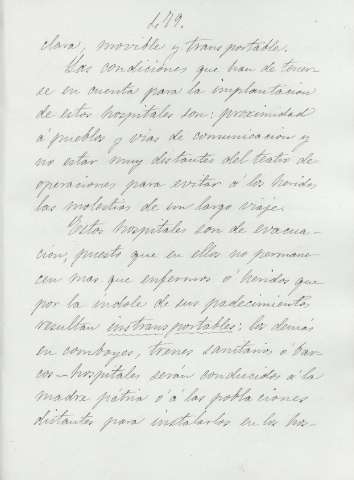 479.
clara, movible y transportable.
Las condiciones que han de tener-
se en cuenta para la implantacion
de estos hospitales son: proximidad
á pueblos y vias de comunicacion y
no estar muy distantes del teatro de
operaciones para evitar á los heridos
las molestias de un largo viaje.
Estos hospitales son de evacua-
cion, puesto que en ellos no permane-
cen mas que enfermos ó heridos que
por la indole de sus padecimientos
resultan instransportables; los demás
en comboyes, trenes sanitarios ó bar-
cos-hospitales serán conducidos á la
madre patria ó á las poblaciones
distantes para instalarlos en los hos-